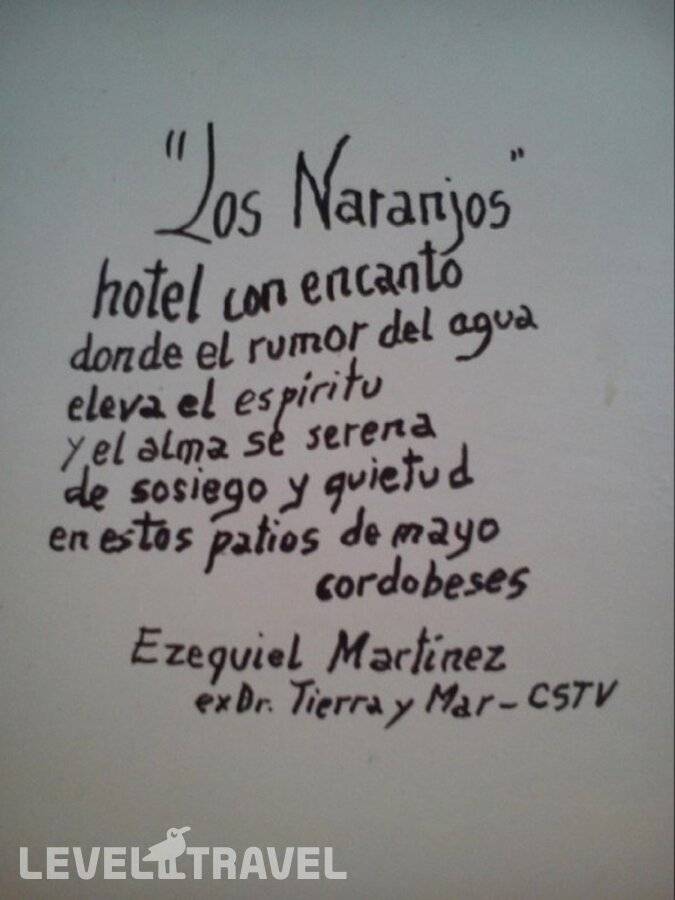 "Los Naranjos"
hotel con encanto
donde el rumor del agua
eleva el espíritu
y el alma se serena
de sosiego y quietud
en estos patios de mayo
cordobeses
Ezequiel Martinez
exDr. Tierra y Mar - CSTV
LEVEL TRAVEL